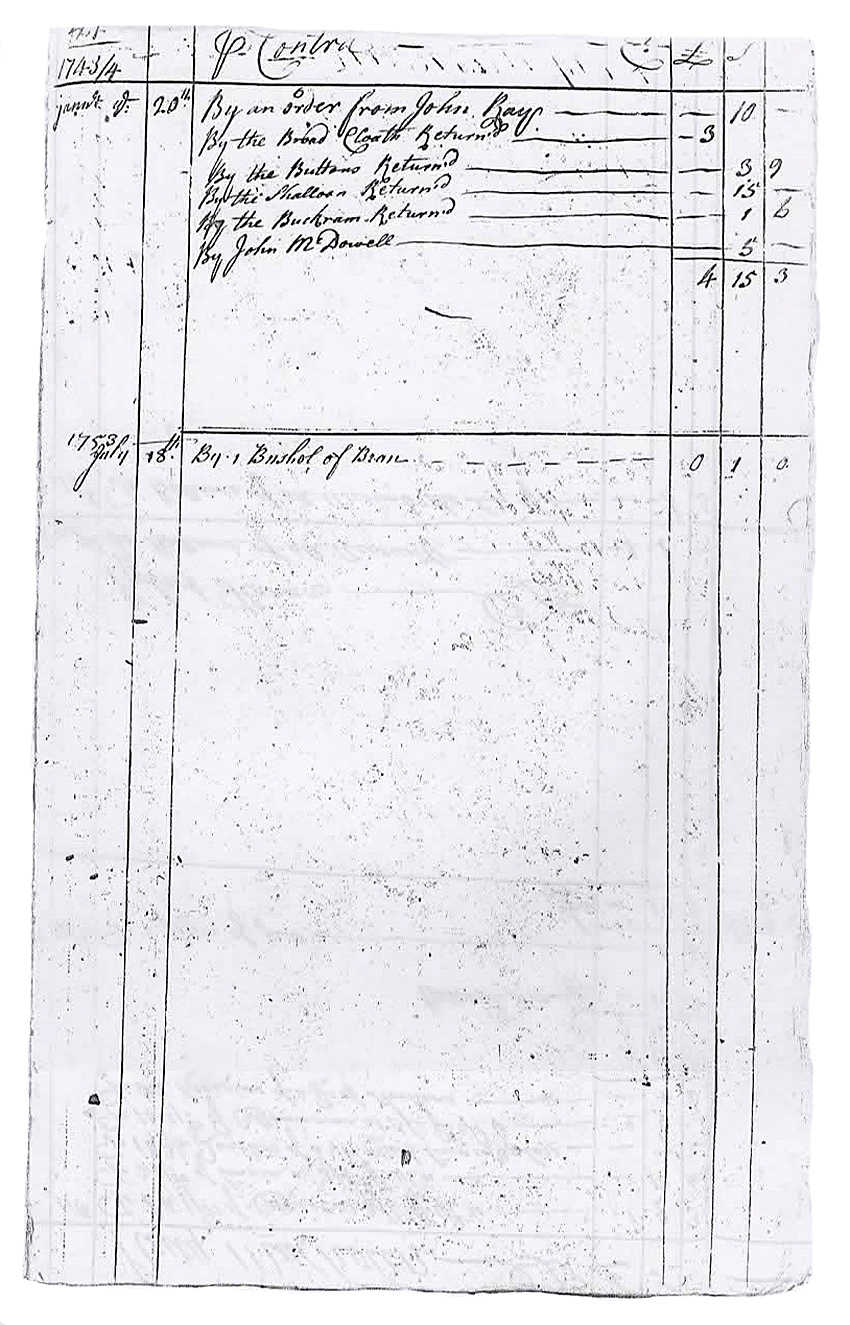 P Contra £ S
1743/4
janr. ye 20th By an order from John Ray — — 10 —
By the Broad Cloath Returnd — 3
By the Buttons Returnd — — 3 9
By the Shalloon Returnd — — 15 —
By the Buckram Returnd — — 1 6
By John McDowell — 5 —
4 15 3
1753
July 18th By 1 Bushol of Bran — — — — — — — 0 1 0